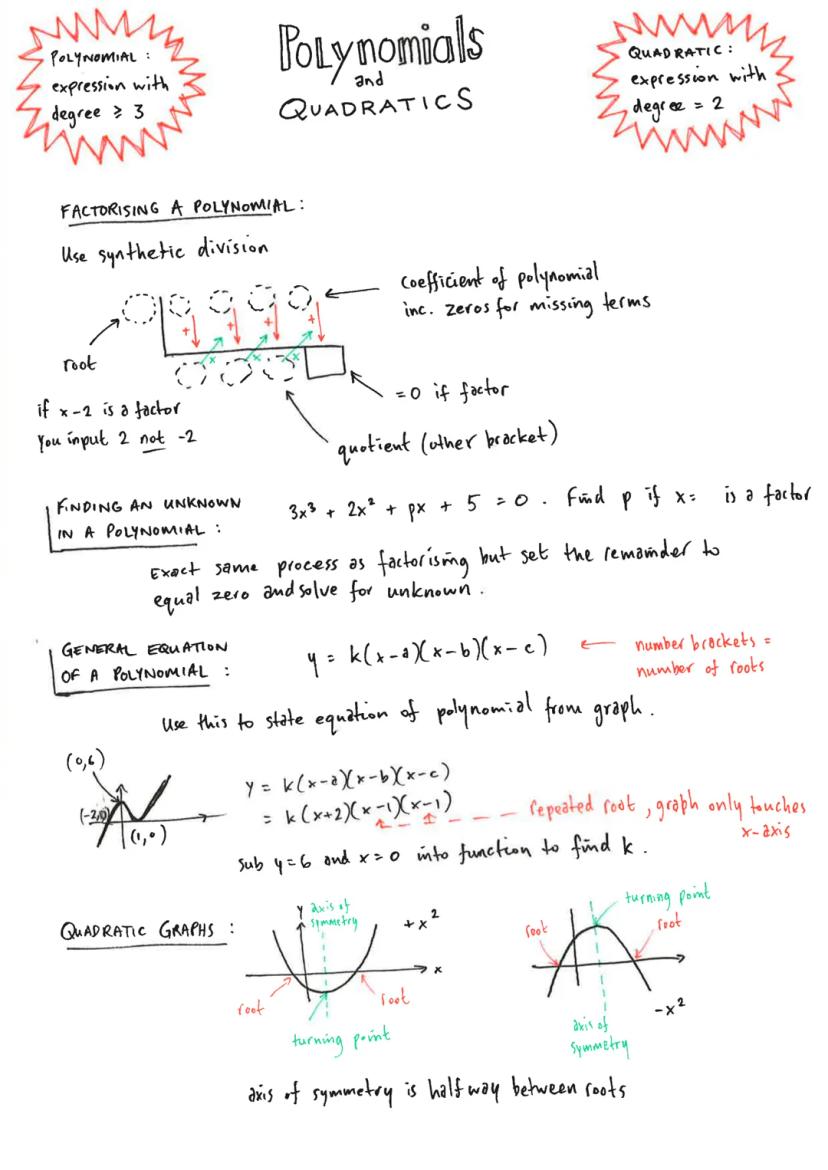 POLYNOMIAL :
expression with
degree ≥ 3
Polynomials
and
QUADRATICS
QUADRATIC :
expression with
degree = 2
FACTORISING A POLYNOMIAL :
Use synthetic division
coefficient of polynomial
inc. zeros for missing terms
+ + + +
x x x
root
= 0 if factor
if x-2 is a factor
You input 2 not -2
quotient (other bracket)
FINDING AN UNKNOWN
IN A POLYNOMIAL :
3x³ + 2x² + px + 5 = 0 . Find p if x= is a factor
Exact same process as factorising but set the remainder to
equal zero and solve for unknown .
GENERAL EQUATION
OF A POLYNOMIAL :
y = k(x-a)(x-b)(x-c)
number brackets =
number of roots
Use this to state equation of polynomial from graph .
(0,6)
(-2,0)
(1,0)
y = k(x-a)(x-b)(x-c)
= k(x+2)(x-1)(x-1)
repeated root , graph only touches
x-axis
sub y=6 and x=0 into function to find k .
QUADRATIC GRAPHS :
y
axis of
symmetry
+x²
x
root
root
turning point
turning point
root
root
-x²
axis of
symmetry
axis of symmetry is halfway between roots